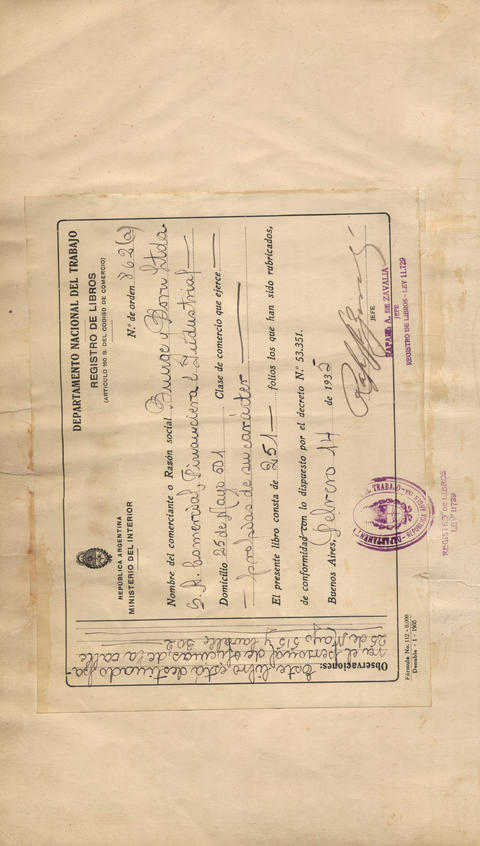 REPÚBLICA ARGENTINA
MINISTERIO DEL INTERIOR
DEPARTAMENTO NACIONAL DEL TRABAJO
REGISTRO DE LIBROS
(ARTICULO 160 S. DEL CODIGO DE COMERCIO)
N.º de orden 862(a)
Nombre del comerciante o Razón social Bunge y Born Ltda
S. A. Comercial, Financiera e Industrial
Domicilio 25 de Mayo 501 Clase de comercio que ejerce
propias de su carácter
El presente libro consta de 251 folios los que han sido rubricados,
de conformidad con lo dispuesto por el decreto N.º 53.351.
Buenos Aires, Febrero 14 de 1935
JEFE
RAFAEL A. DE ZAVALIA
JEFE
REGISTRO DE LIBROS - LEY 11.729
REGISTRO DE LIBROS
LEY 11729
Observaciones:
Este libro está destinado pa-
ra el personal de oficinas de la calle
25 de Mayo 515 y Lavalle 302
Fórmula No. 112 - 8.000
1 - 1935